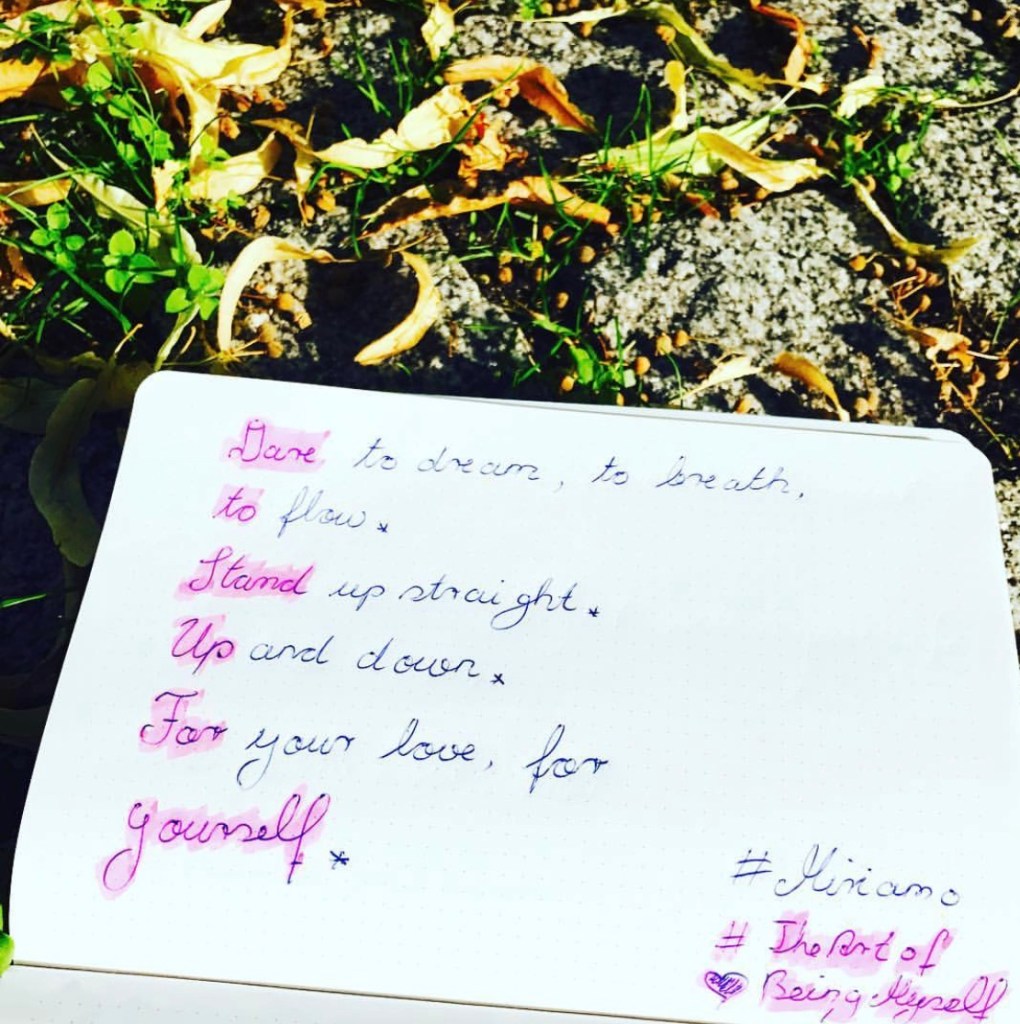 Dare to dream, to breath,
to flow*
Stand up straight*
Up and down*
For your love, for
yourself*
#Miriamo
#TheArtof
BeingMyself